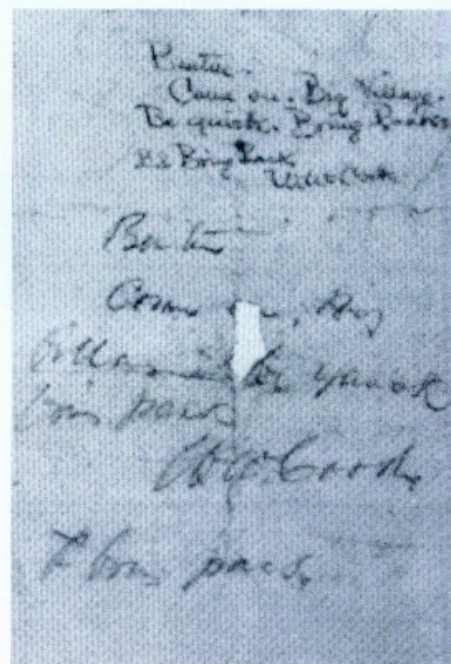 Benteen.
Come on. Big Village.
Be quick. Bring Packs
P.S Bring Pack
W.W. Cooke
Benteen
Come on, Big
Village be quick
bring pacs
W.W. Cooke
P bring pacs.